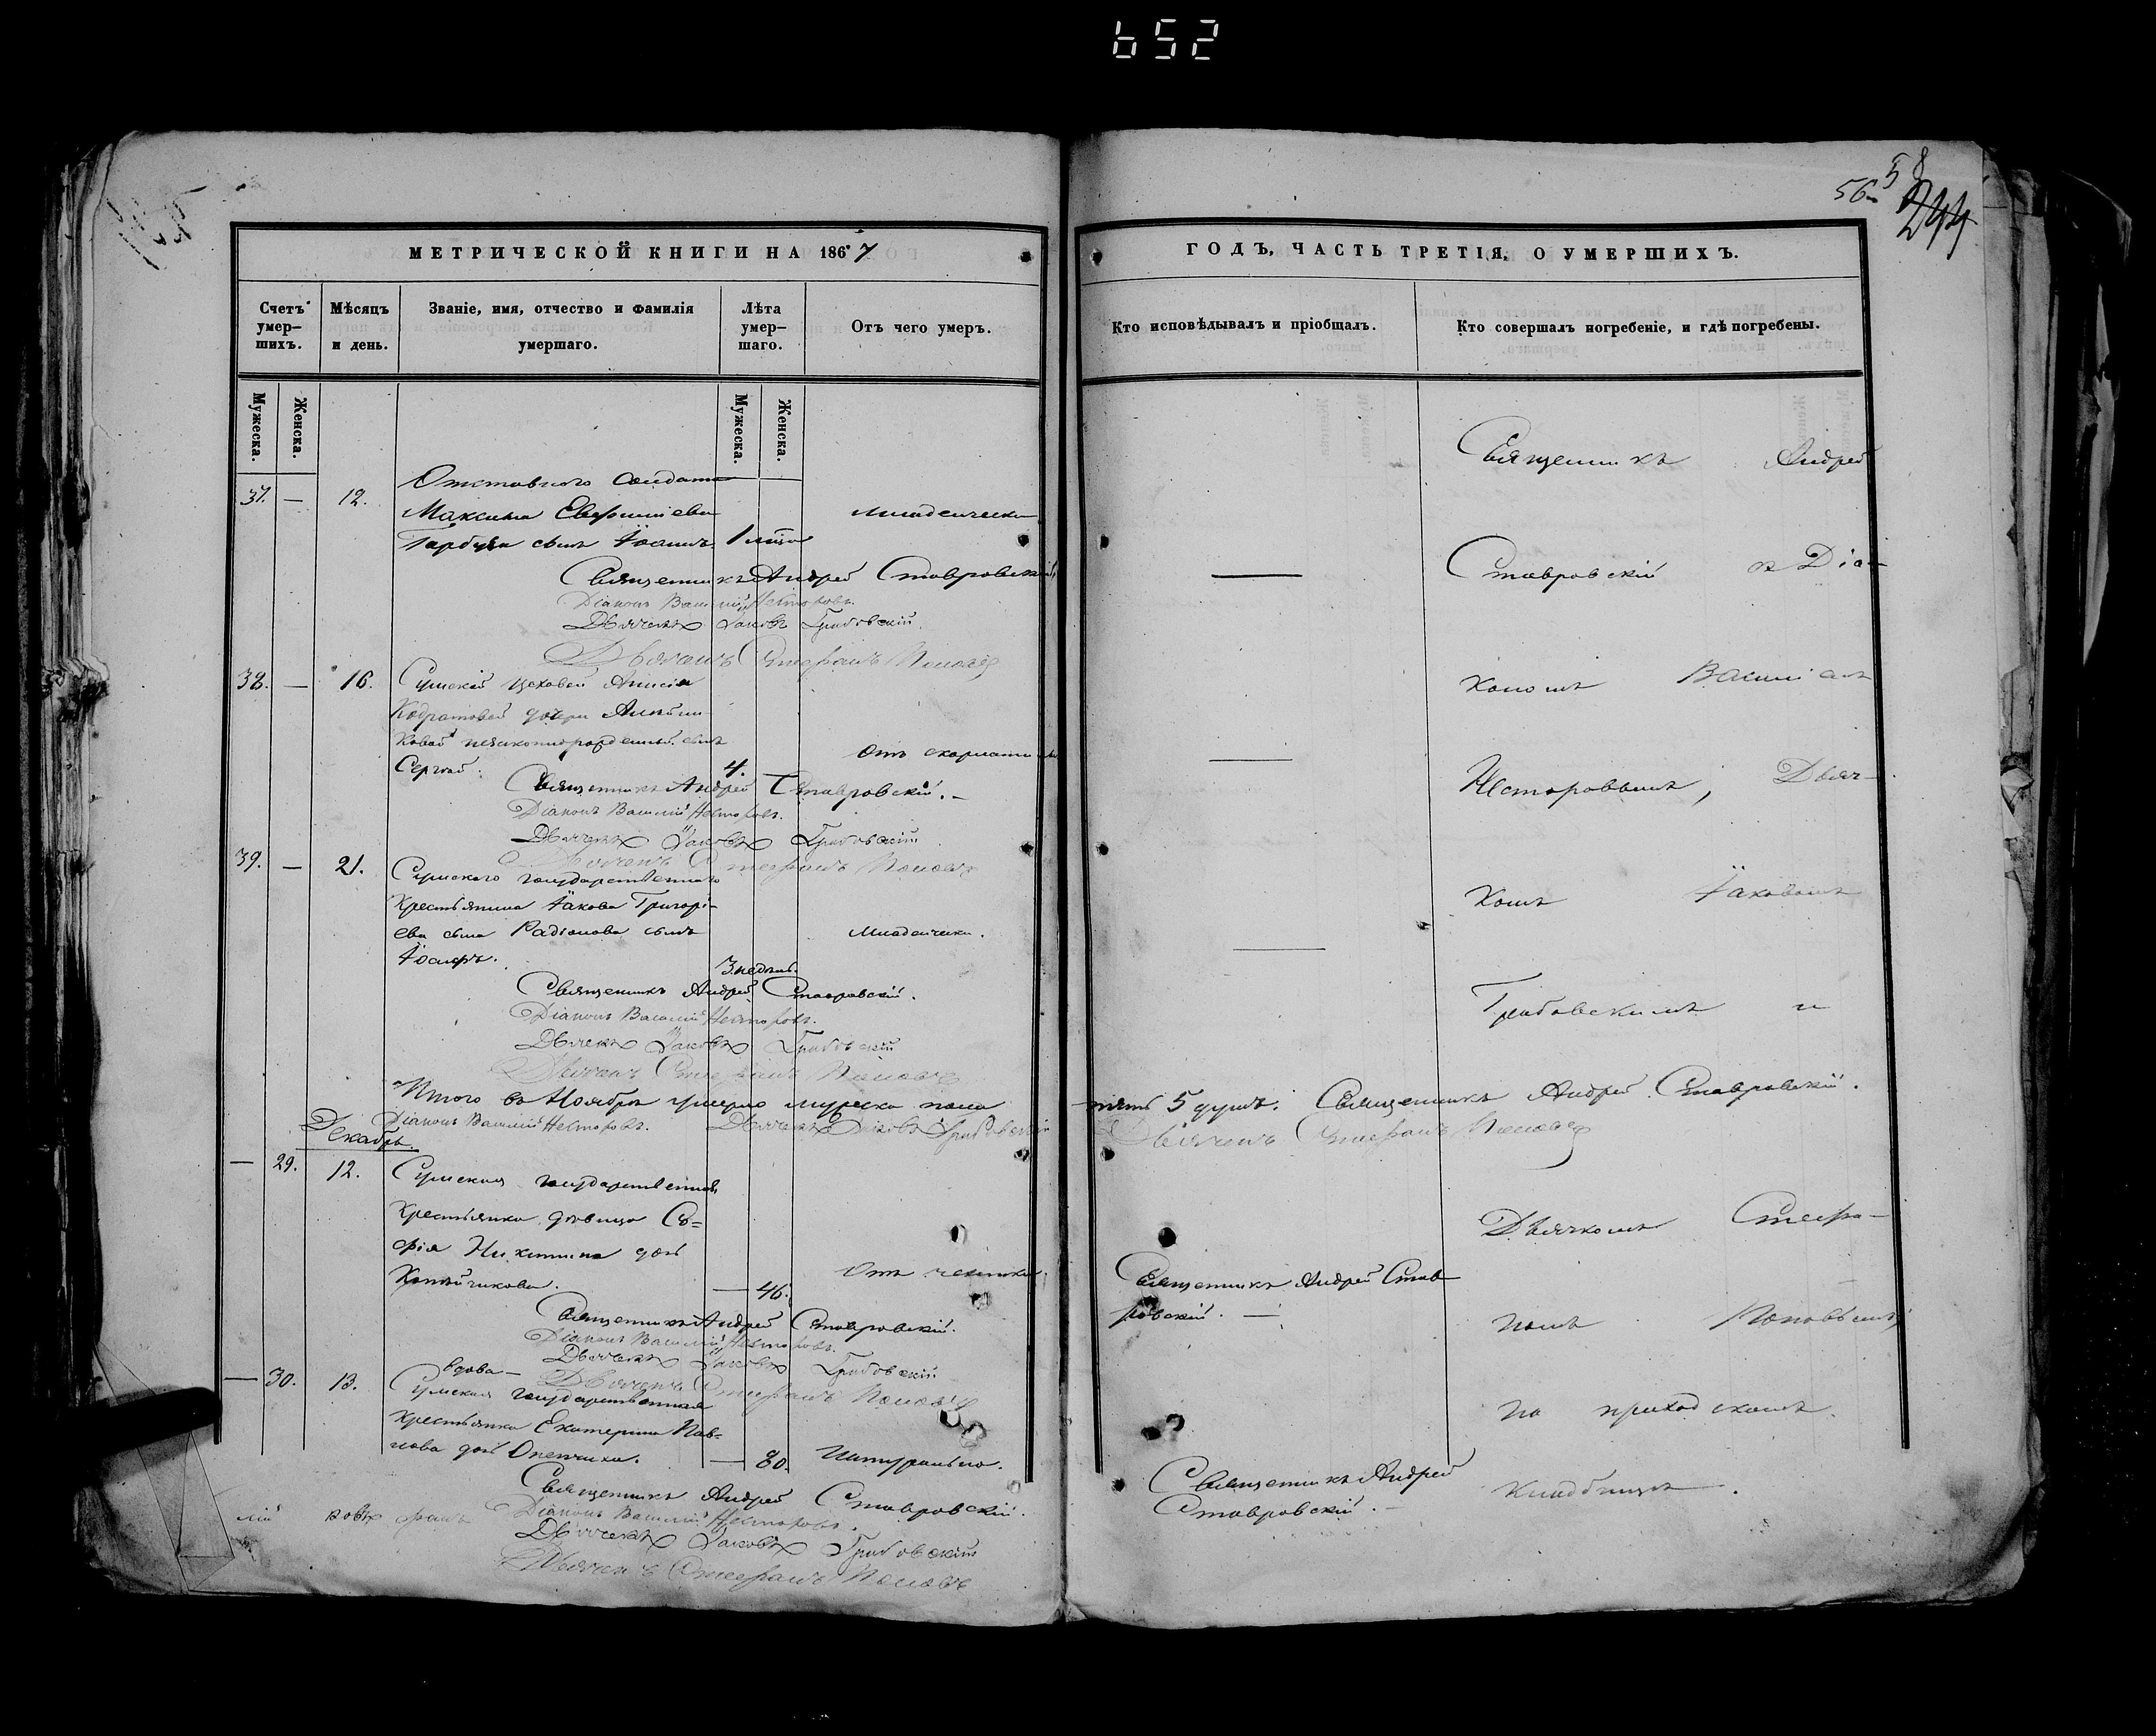 652
56
58
244
МЕТРИЧЕСКОЙ КНИГИ НА 1867
ГОДЪ, ЧАСТЬ ТРЕТІЯ, О УМЕРШИХЪ.
Счетъ умер-
шихъ.
Мѣсяцъ
и день.
Званіе, имя, отчество и фамилія
умершаго.
Лѣта
умер-
шаго.
Отъ чего умеръ.
Кто исповѣдывалъ и пріобщалъ.
Кто совершалъ погребеніе, и гдѣ погребены.
Мужеска.
Женска.
Мужеска.
Женска.
37. — 12.
Отставного Солдата
Максима
сынъ Іоаннъ. 1 мѣца
Младенчески
Священникъ Андрей Ставровскій
Діаконъ Василій Несторовъ.
Дьячекъ Іаковъ Грибовскій
Дьячекъ Стефанъ Поповъ
38. — 16.
Сумской цеховой
дочери
сынъ
Сергѣй. 4.
Отъ скарлатины
Священникъ Андрей Ставровскій. —
Діаконъ Василій Несторовъ.
Дьячекъ Іаковъ Грибовскій
Дьячекъ Стефанъ Поповъ
39. — 21.
Сумского государственного
Крестьянина Іакова Григорі-
ева сына Радіонова сынъ
Іосифъ. 3 недѣль.
Младенчески.
Священникъ Андрей Ставровскій.
Діаконъ Василій Несторовъ.
Дьячекъ Іаковъ Грибовскій
Дьячекъ Стефанъ Поповъ
Итого въ Ноябрѣ умерло мужеска пола
пять 5 душъ. Священникъ Андрей Ставровскій.
Діаконъ Василій Несторовъ. Дьячекъ Іаковъ Грибовскій
Дьячекъ Стефанъ Поповъ
Декабрь.
— 29. 12.
Сумская государственная
Крестьянка дѣвица Со=
фія Никитина дочь
— 46.
Священникъ Андрей Став-
ровскій. —
Священникъ Андрей Ставровскій.
Діаконъ Василій Несторовъ.
Дьячекъ Іаковъ Грибовскій.
Дьячекъ Стефанъ Поповъ
— 30. 13.
вдова —
Сумская государственная
Крестьянка Екатерина Пав=
лова дочь
— 80. Натурально.
Священникъ Андрей
Ставровскій. —
Священникъ Андрей Ставровскій.
Діаконъ Василій Несторовъ.
Дьячекъ Іаковъ Грибовскій
Дьячекъ Стефанъ Поповъ
Священникъ Андрей
Ставровскій съ Діа-
кономъ Василіемъ
Несторовымъ, Дьяч-
комъ Іаковомъ
Грибовскимъ и
Дьячкомъ Стефа-
номъ Поповымъ,
на приходскомъ
Кладбищѣ.